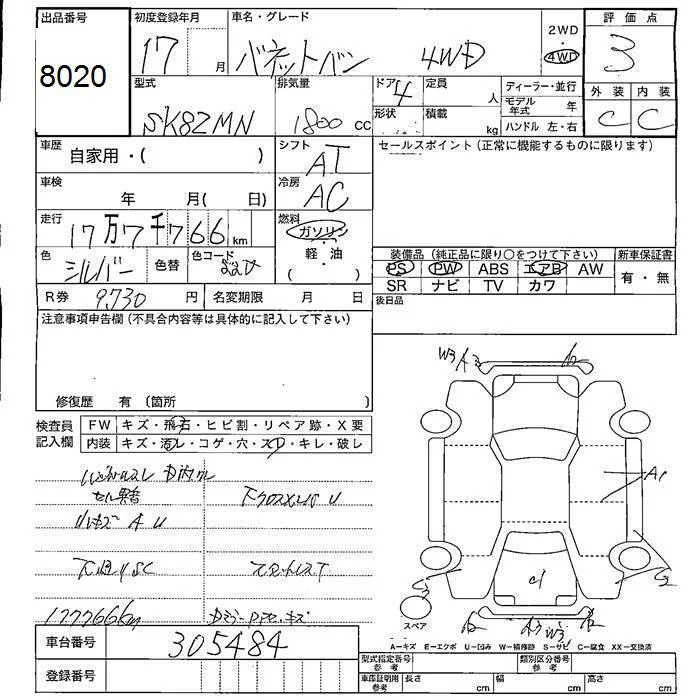 出品番号
8020
初度登録年月
17 月
車名・グレード
バネットバン 4WD
2WD
・
4WD
評価点
3
型式
SK82MN
排気量
1800 cc
ドア
4
形状
定員
人
積載
kg
ディーラー・並行
モデル年式 年
ハンドル 左・右
外装 内装
C C
車歴
自家用・( )
シフト
AT
セールスポイント(正常に機能するものに限ります)
車検
年 月( 日)
冷房
AC
走行
17万7千766km
燃料
ガソリン
軽・油
( )
色
シルバー
色替
色コード
装備品 (純正品に限り○をつけて下さい)
新車保証書
PS PW ABS エアB AW
有・無
SR ナビ TV カワ
R券 9,730 円
名変期限 月 日
後日品
注意事項申告欄(不具合内容等は具体的に記入して下さい)
修復歴 有 (箇所 )
検査員
記入欄
FW キズ・飛石・ヒビ割・リペア跡・X要
内装 キズ・汚レ・コゲ・穴・スレ・キレ・破レ
W3 A3
A1
スペア
A3 W3
A−キズ E−エクボ U−凹み W−補修跡 S−サビ C−腐食 XX−交換済
車台番号
305484
登録番号
型式指定番号
参考
類別区分番号
参考
車庫証明用
参考
長さ cm
幅 cm
高さ cm